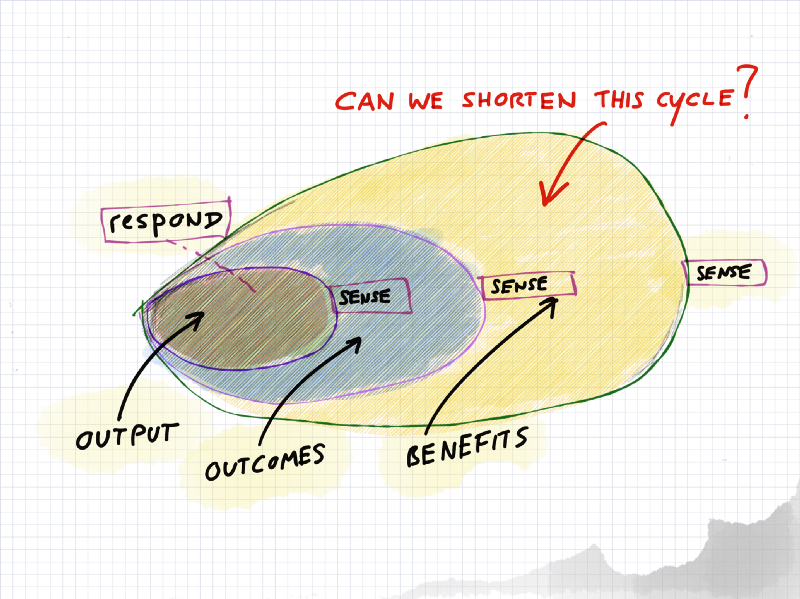 CAN WE SHORTEN THIS CYCLE?
respond
SENSE
SENSE
SENSE
OUTPUT
OUTCOMES
BENEFITS